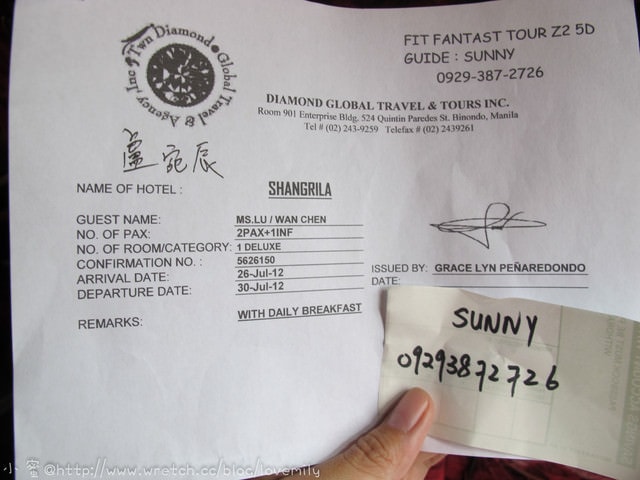 Twn Diamond Global Travel & Agency Inc
FIT FANTAST TOUR Z2 5D
GUIDE : SUNNY
0929-387-2726
DIAMOND GLOBAL TRAVEL & TOURS INC.
Room 901 Enterprise Bldg. 524 Quintin Paredes St. Binondo, Manila
Tel # (02) 243-9259 Telefax # (02) 2439261
盧宛辰
NAME OF HOTEL : SHANGRILA
GUEST NAME: MS.LU / WAN CHEN
NO. OF PAX: 2PAX+1INF
NO. OF ROOM/CATEGORY: 1 DELUXE
CONFIRMATION NO. : 5626150
ARRIVAL DATE: 26-Jul-12
DEPARTURE DATE: 30-Jul-12
ISSUED BY: GRACE LYN PEÑAREDONDO
DATE:
REMARKS: WITH DAILY BREAKFAST
SUNNY
09293872726
小蜜@http://www.wretch.cc/blog/lovemily